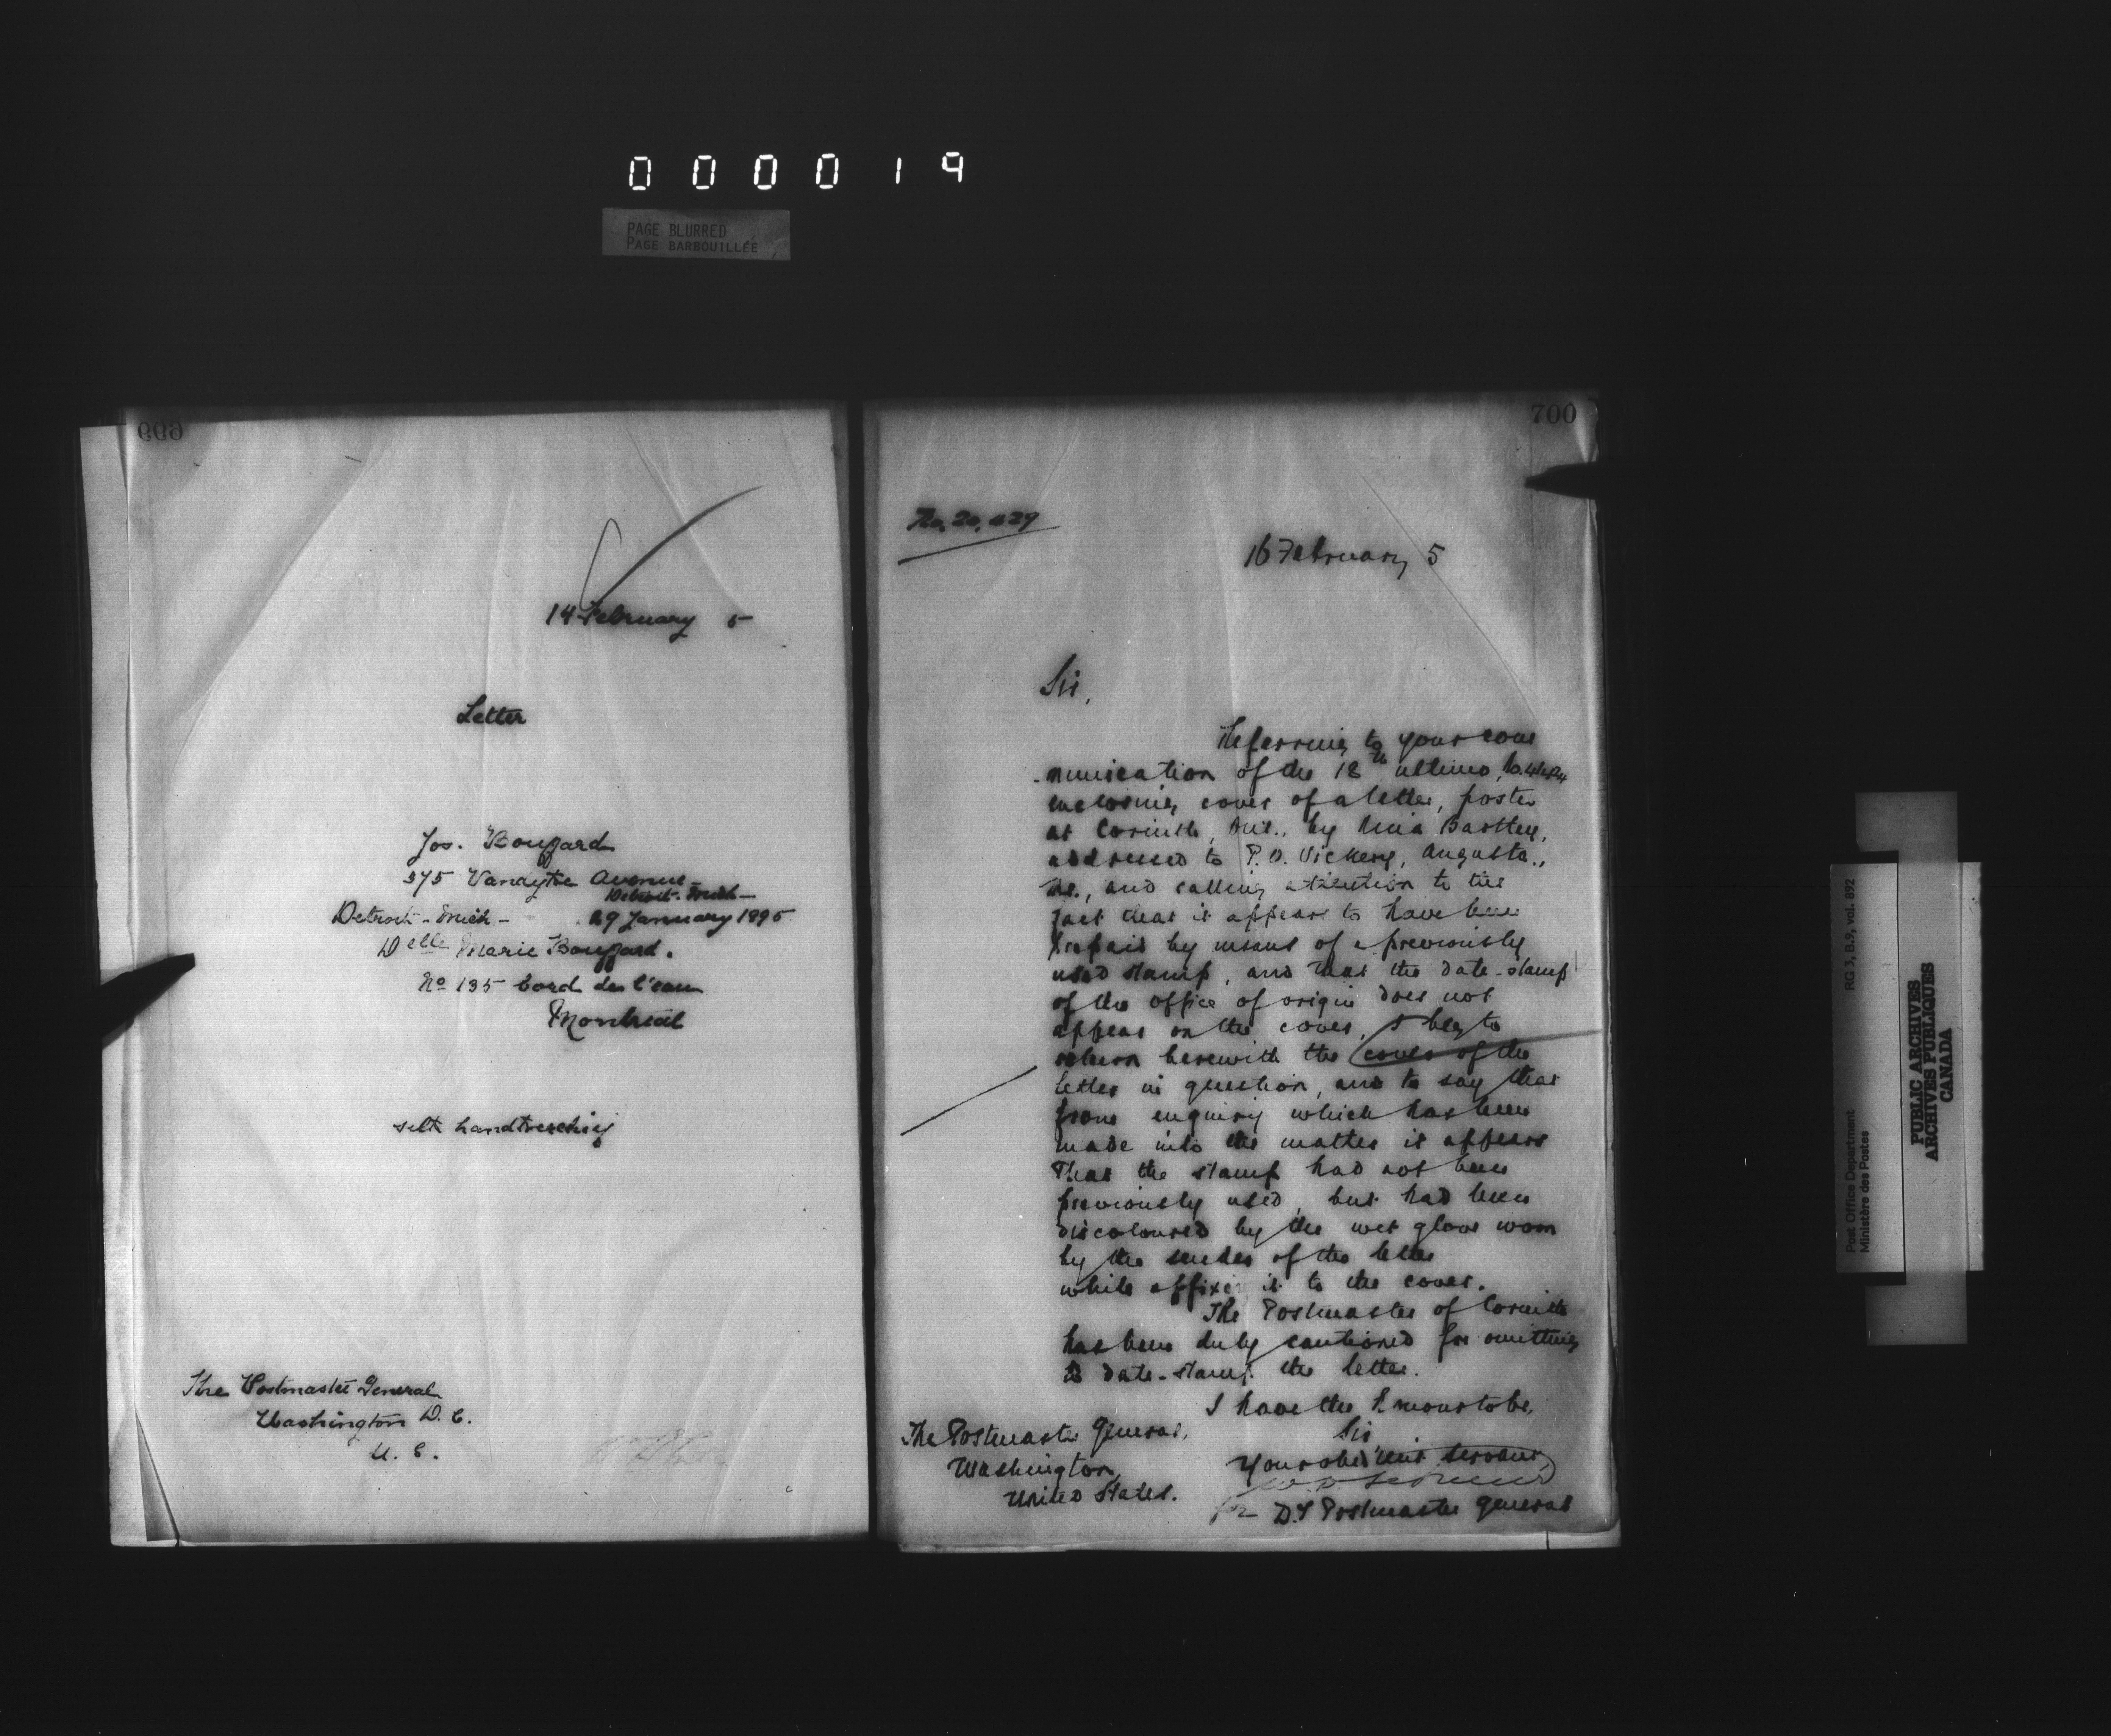 000019
PAGE BLURRED
PAGE BARBOUILLÉE
699
14 February 5
Letter
Jos. Bouffard
375 Avenue
Detroit-Mich-
Detroit-Mich- 29 January 1895
Delle Marie Bouffard.
No 135 bord de l'eau
Montreal
silk handkerchief
The Postmaster General
Washington D. C.
U. S.
700
No. 20,
16 February 5
Sir,
Referring to your com
-munication of the 18th ultimo,
enclosing cover of a letter, posted
at Corinth, Ont., by
addressed to P.O. Vickery, Augusta,
Me., and calling attention to the
fact that it appears to have been
prepaid by means of a previously
used stamp, and that the date-stamp
of the office of origin does not
appear on the cover, I beg to
return herewith the cover of the
letter in question, and to say that
from enquiry which has been
made into the matter it appears
that the stamp had not been
previously used, but had been
discoloured by the wet glove worn
by the sender of the letter
while affixing it to the cover.
The Postmaster of Corinth
has been duly cautioned for omitting
to date-stamp the letter.
I have the honour to be,
Sir,
Your obedient servant
for D.P. Postmaster General
The Postmaster General,
Washington,
United States.
Post Office Department RG 3, B.9, vol. 692
Ministère des Postes
PUBLIC ARCHIVES
ARCHIVES PUBLIQUES
CANADA